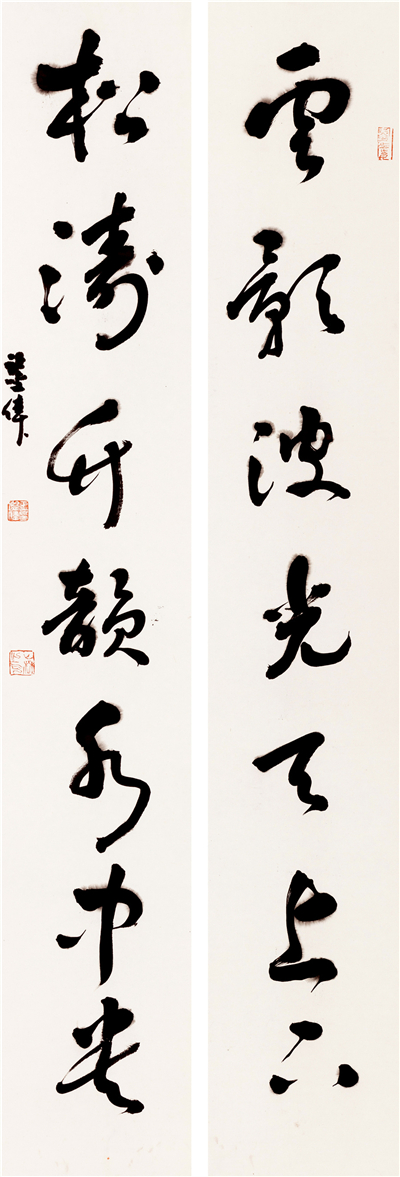 雲影波光天上下
松濤竹韻水中央